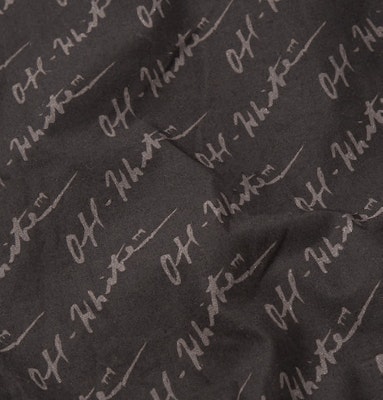 Off-White™
Off-White™
Off-White™
Off-White™
Off-White™
Off-White™
Off-White™
Off-White™
Off-White™